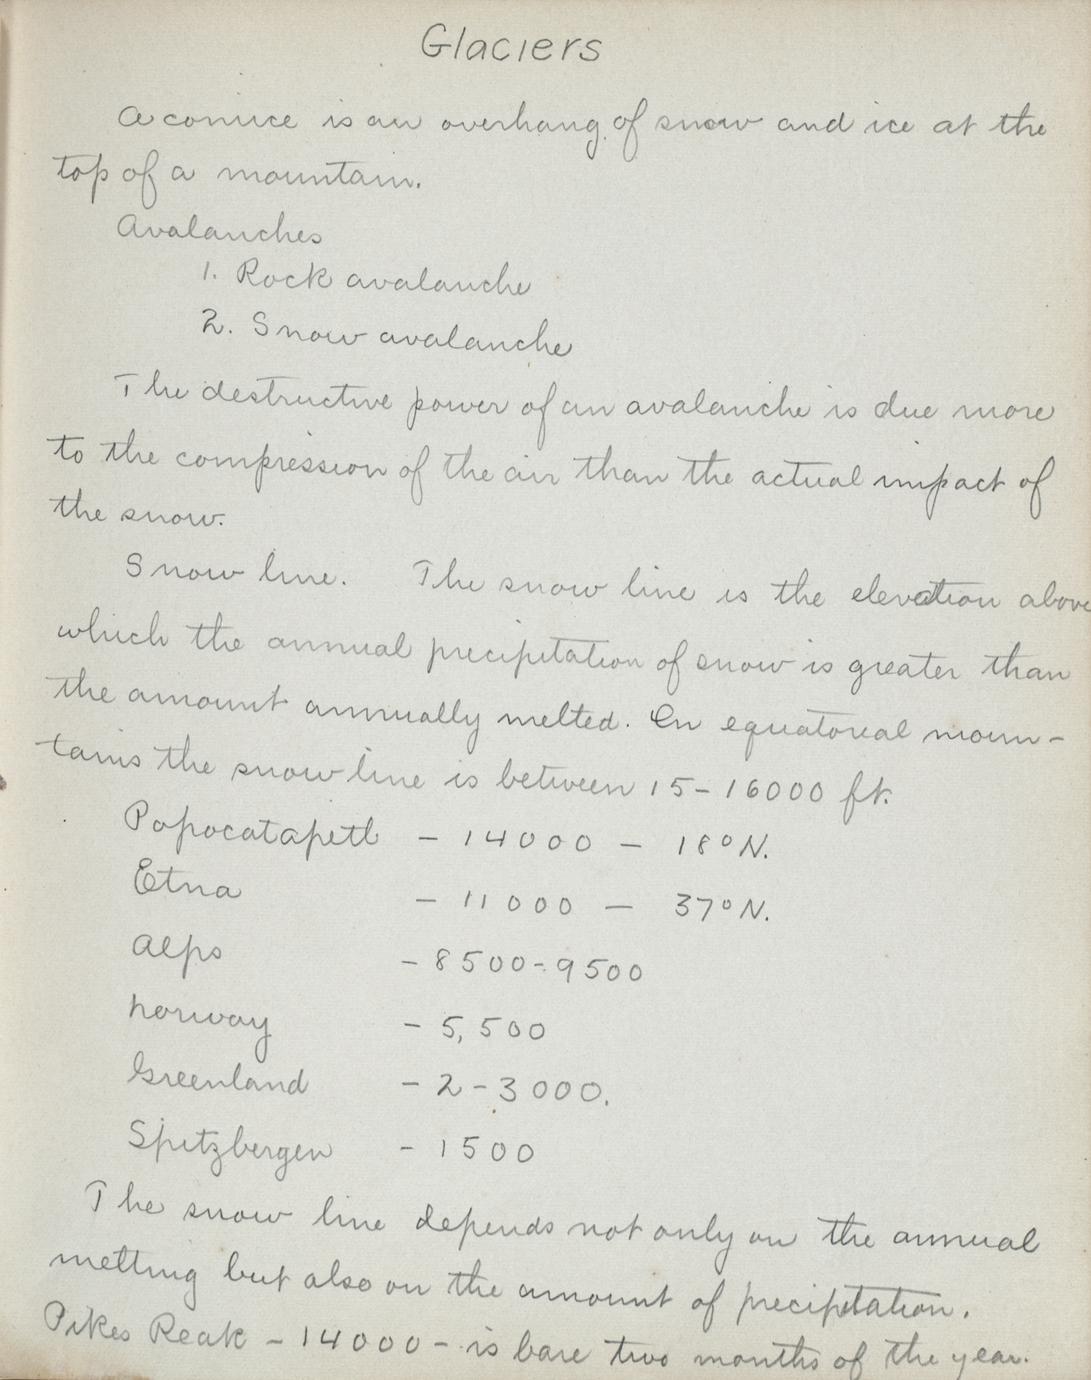 Glaciers
A cornice is an overhang of snow and ice at the
top of a mountain.
Avalanches
1. Rock avalanche
2. Snow avalanche
The destructive power of an avalanche is due more
to the compression of the air than the actual impact of
the snow.
Snow line. The snow line is the elevation above
which the annual precipitation of snow is greater than
the amount annually melted. In equatorial moun-
tains the snow line is between 15-16000 ft.
Popocatapetl - 14000 - 18° N.
Etna - 11000 - 37° N.
Alps - 8500-9500
Norway - 5,500
Greenland - 2-3000.
Spitzbergen - 1500
The snow line depends not only on the annual
melting but also on the amount of precipitation.
Pikes Peak - 14000 - is bare two months of the year.